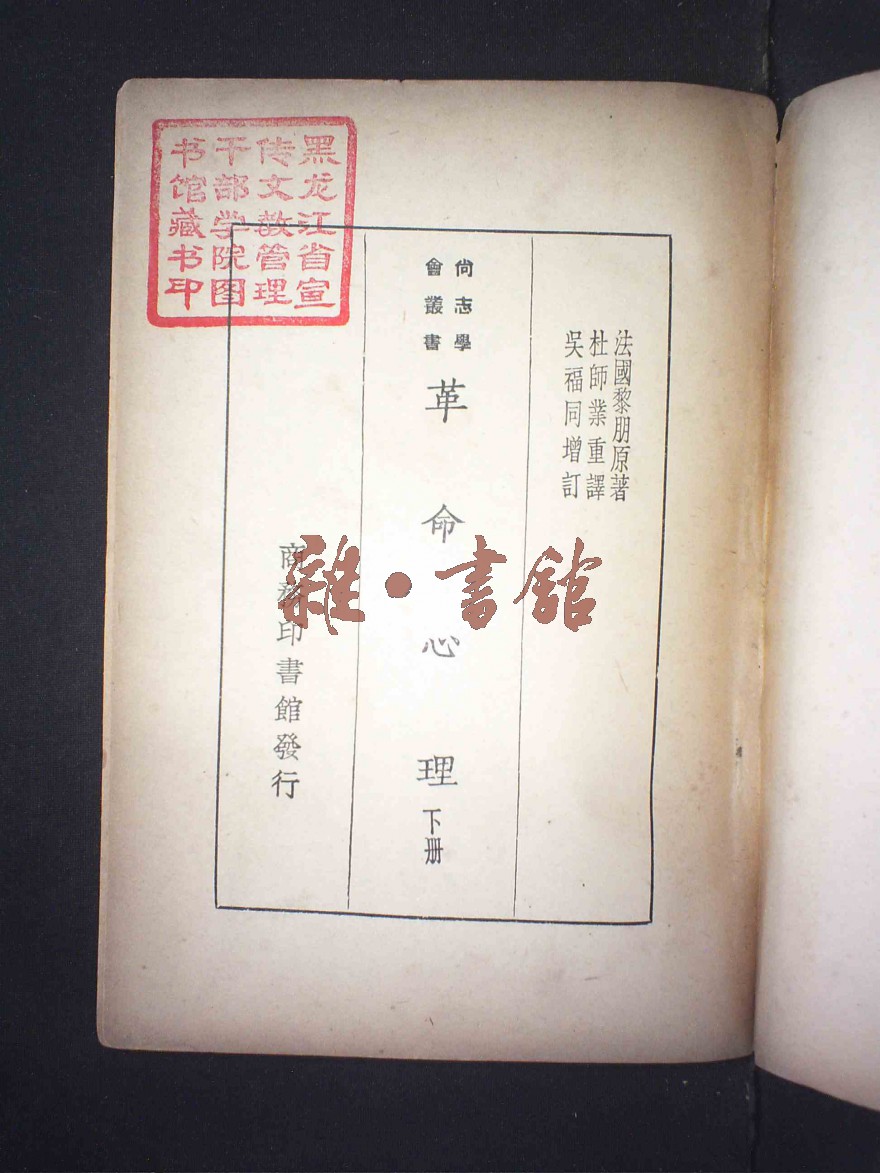 黑龙江省宣
传文教管理
干部学院图
书馆藏书印
法國黎朋原著
杜師業重譯
吳福同增訂
尚志學
會叢書
革命心理
下册
商務印書館發行
雜·書館